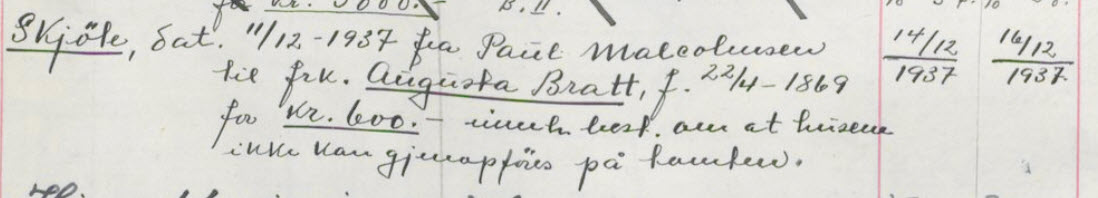 for Kr. 3000.- B. II.
Skjöte, dat. 11/12-1937 fra Paul Malcolmsen 14/12 1937 16/12 1937.
til frk. Augusta Bratt, f. 22/4-1869
for Kr. 600.- inneh. best. om at husene
ikke kan gjenopföres på tomten.